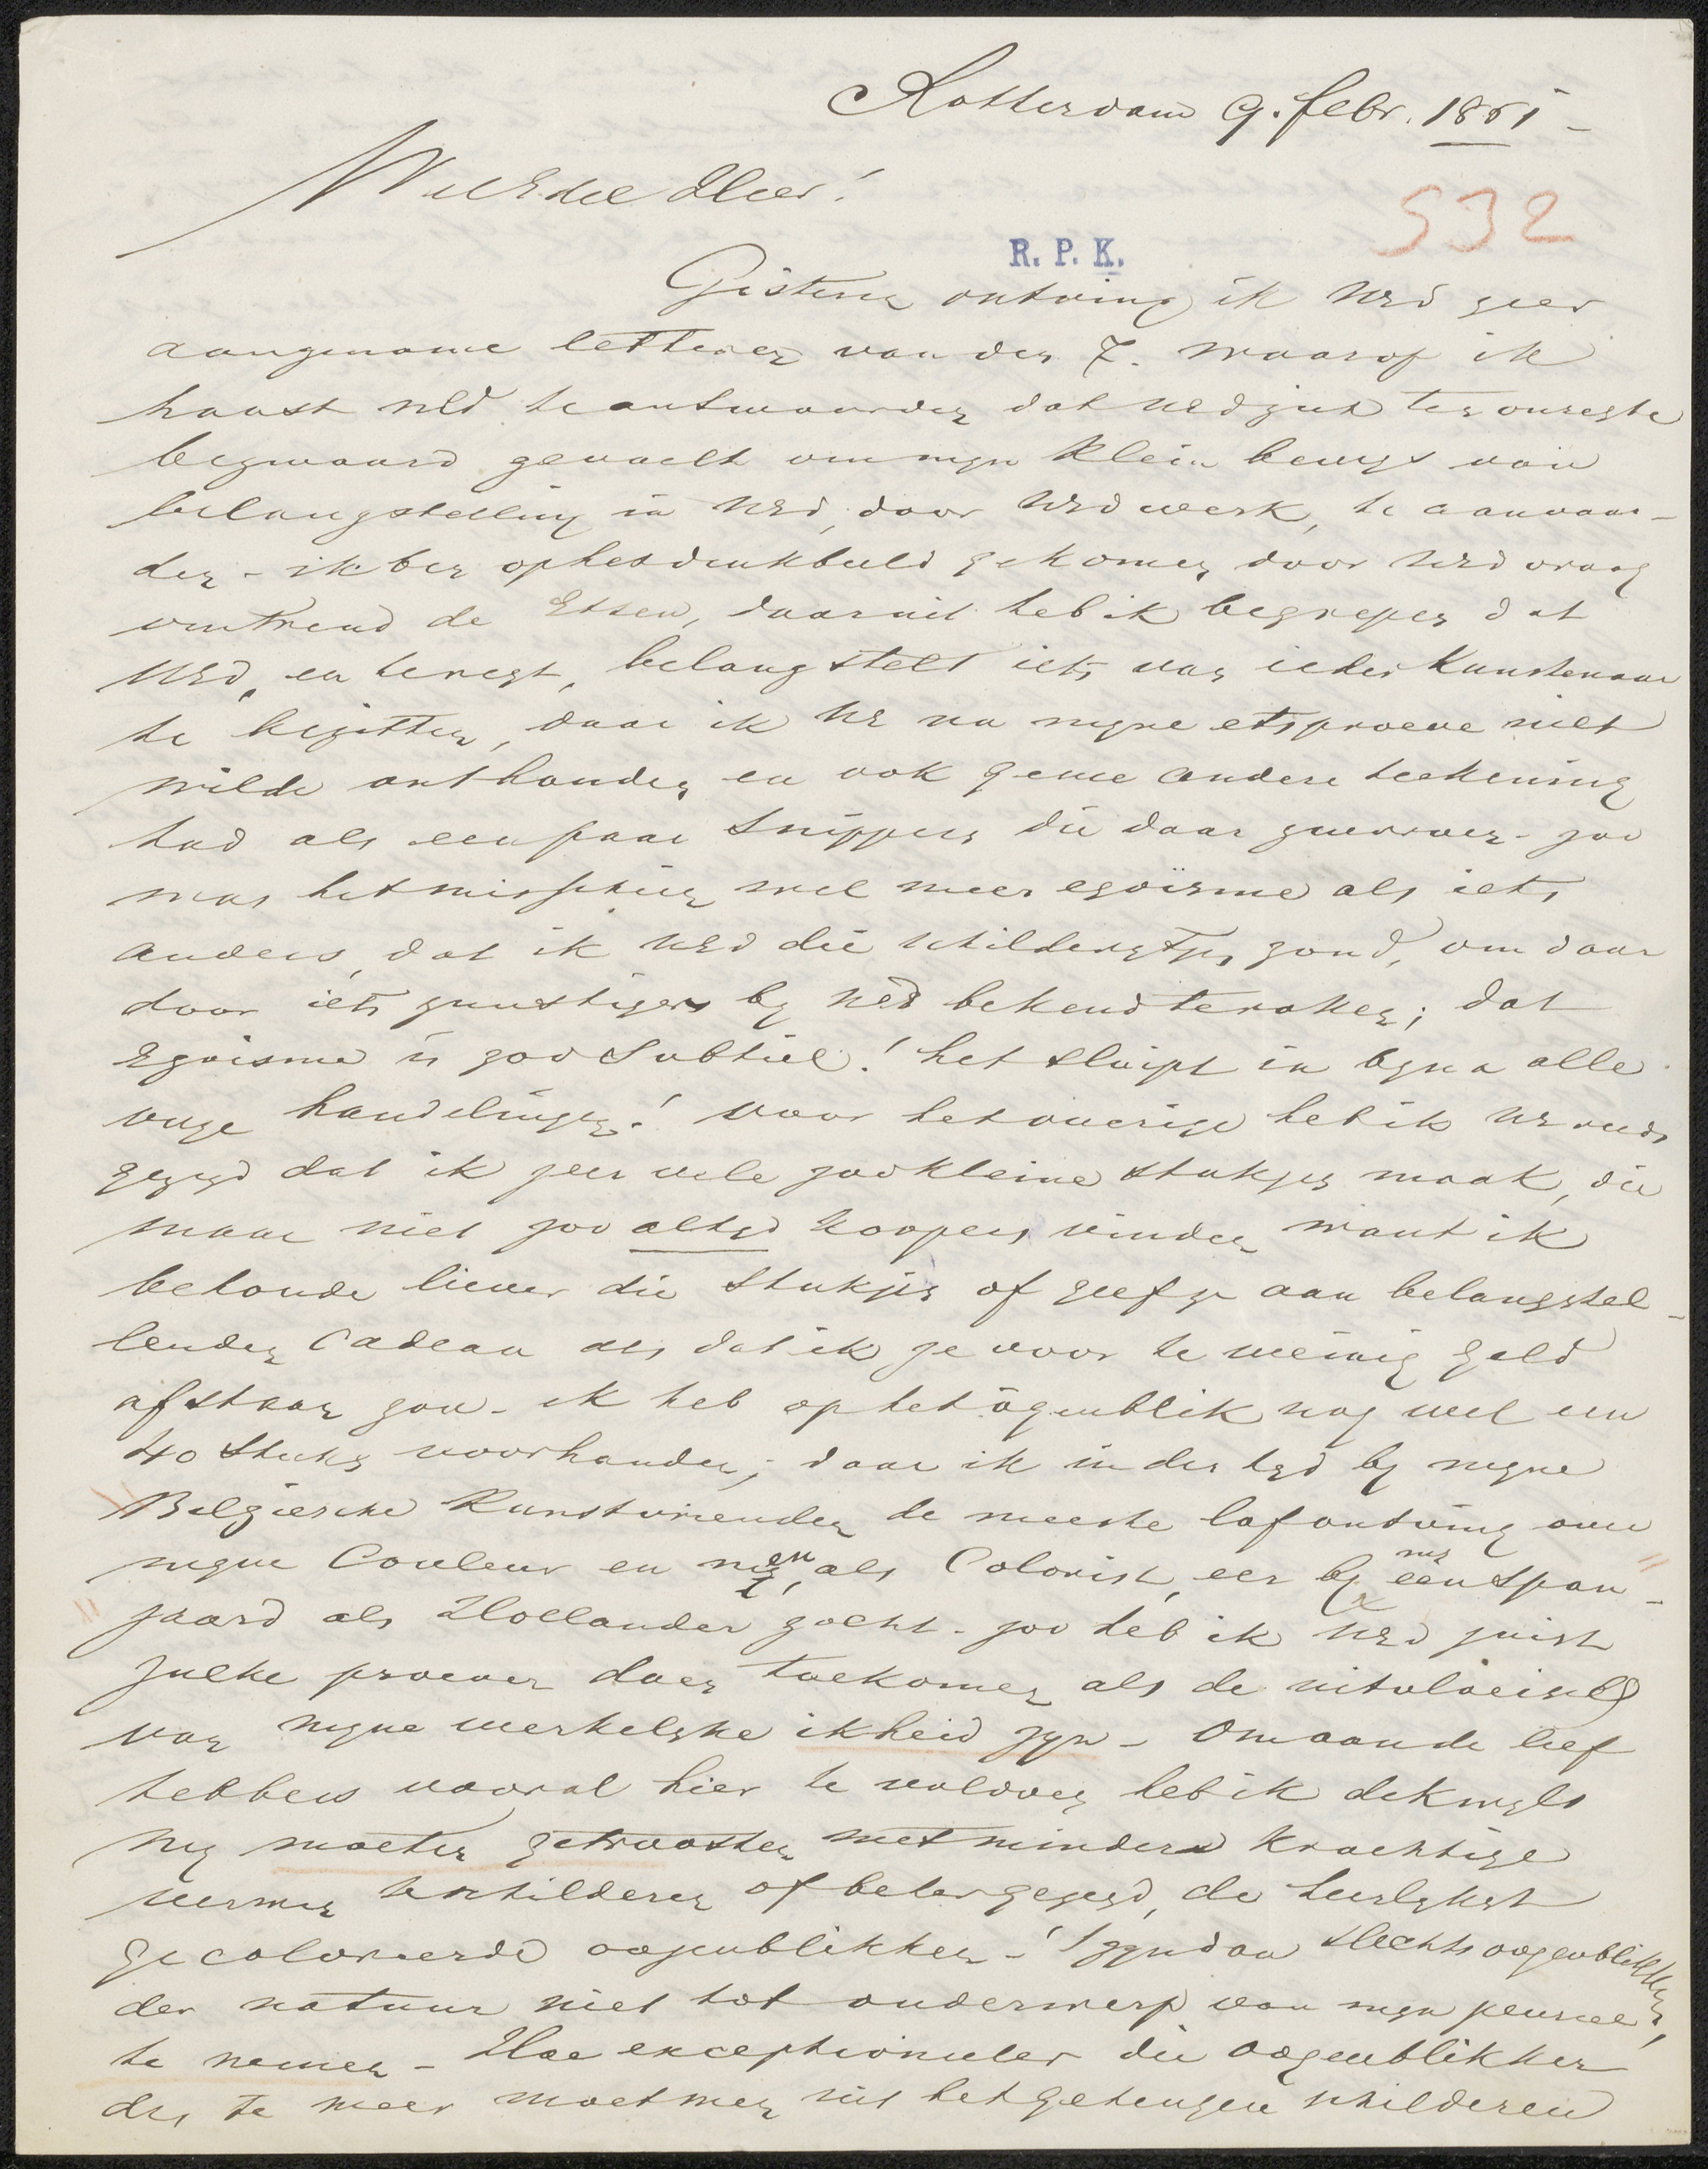 Rotterdam 9. febr. 1861 -
WelEdele Heer!
532
R. P. K.
Gisteren ontving ik UEd zeer
aangename letteren van den 7. waarop ik
haast UEd te antwoorden dat UEd zich ten onregte
bezwaard gevoelt om mijn klein bewijs van
belangstelling in UEd, door UEd werk, te aanvaar-
den - ik ben op het denkbeeld gekomen door UEd vraag
omtrend de Etsen, daaruit heb ik begrepen dat
UEd, en teregt, belangstelt iets van ieder Kunstenaar
te bezitten, daar ik UE nu mijne etsproeve niet
wilde onthouden en ook geene andere teekening
had als een paar snippers die daar
was het misschien wel meer egoïsme als iets
anders, dat ik UEd die schilderijtjes zond, om daar
door iets gunstigers bij UEd bekend te raken; dat
Egoisme is zoo Subtiel! het sluipt in bijna alle
onze handelingen! voor het overige heb ik UE reeds
gezegd dat ik zeer vele zoo kleine stukjes maak, die
maar niet zoo altijd koopers vinden want ik
behoude liever die stukjes of geef ze aan belangstel-
lenden cadeau als dat ik ze voor te weinig geld
afstaan zou - ik heb op het ogenblik nog wel een
40 Stuks voorhanden; daar ik in der tijd bij mijne
Belgiesche Kunstvrienden de meeste lof ontving over
mijne Couleur en men, als Colorist, eer bij mij een Span-
jaard als Hollander zocht - zoo heb ik UEd juist
zulke proeven doen toekomen als de uitvloeisels
van mijne werkelijke ikheid zijn - Om aan de lief
hebbers vooral hier te voldoen heb ik dikwijls
mij moeten getroosten met mindere krachtige
vermen te schilderen of beter gezegd, de heerlijkst
gecoloreerde oogenblikken - 't zijn dan slechts oogenblikken,
der natuur niet tot onderwerp van mijn penseel
te nemen - Hoe exceptioneeler die oogenblikken
des te meer moet men uit het geheugen schilderen